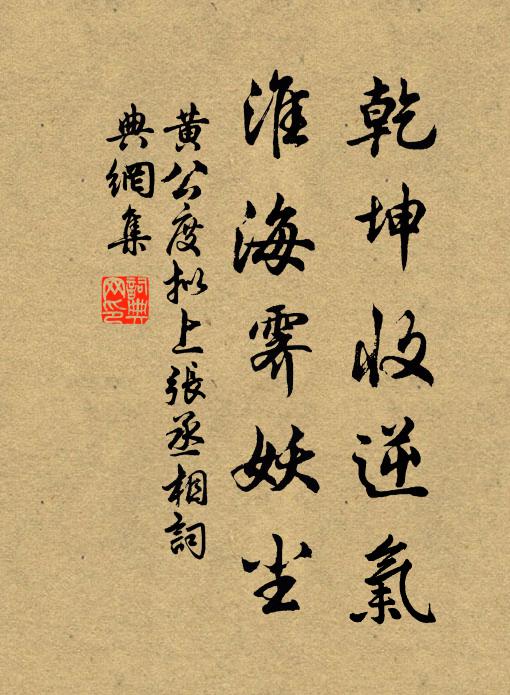 乾坤收逆氣
淮海霽妖尘
黄公度拟上張丞相詞
典網集
詞典網印